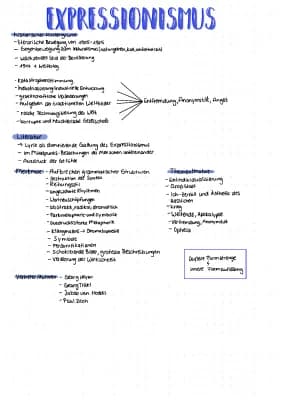 EXPRESSIONISMUS
Historischer Hintergrund
- literarische Bewegung von 1905-1925
- Gegenbewegung zum Naturalismus
- Wachstum der Bevölkerung
- 1914 1. Weltkrieg
- Katastrophenstimmung
- Industrialisierung/industrielle Entwicklung
- gesellschaftliche Veränderungen
- Aufgeben der traditionellen Weltbilder
- rasche Technologisierung der Welt
- korrupte und heuchlerische Gesellschaft
Entfremdung, Anonymität, Angst
Literatur
→ Lyrik als dominierende Gattung des Expressionismus
→ Im Mittelpunkt: Beziehungen der Menschen untereinander
→ Ausdruck der Gefühle
Merkmale - Aufbrechen grammatischer Strukturen
- Zerstückeln der Syntax
- Reihungsstil
- ungewohnte Rhythmen
- Wortneuschöpfungen
- ekstatisch, radikal, dramatisch
- Farbmetaphorik und Symbole
- ausdrucksstarke Metaphorik
- Klangmalerei - Onomatopoesie
- Symbole
- Personifikationen
- Schockierende Bilder, groteske Beschreibungen
- Verzerrung der Wirklichkeit
Themen
- Entindividualisierung
- Großstadt
- Ich-Zerfall und Ästhetik des
Hässlichen
- Krieg
- Weltende, Apokalypse
- Verfremdung, Anonymität
- Ophelia
äußere Formstrenge
innere Formauflösung
Vertreter - Georg Heym
- Georg Trakl
- Jakob van Hoddis
- Paul Zech